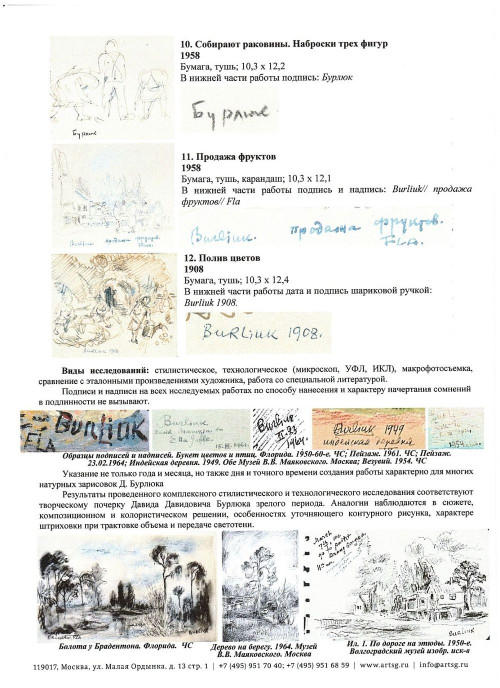 10. Собирают раковины. Наброски трех фигур
1958
Бумага, тушь; 10,3 х 12,2
В нижней части работы подпись: Бурлюк
Бурлюк
Бурлюк
11. Продажа фруктов
1958
Бумага, тушь, карандаш; 10,3 х 12,1
В нижней части работы подпись и надпись: Burliuk// продажа
фруктов// Fla
Burliuk продажа фруктов.
Burliuk. продажа фруктов.
FLA.
12. Полив цветов
1908
Бумага, тушь; 10,3 х 12,4
В нижней части работы дата и подпись шариковой ручкой:
Burliuk 1908.
BURLIUK 1908
BURLIUK 1908.
Виды исследований: стилистическое, технологическое (микроскоп, УФЛ, ИКЛ), макрофотосъемка,
сравнение с эталонными произведениями художника, работа со специальной литературой.
Подписи и надписи на всех исследуемых работах по способу нанесения и характеру начертания сомнений
в подлинности не вызывают.
BURLIUK
Fla
Burliuk
Burliuk
1964
Burliuk 1949
индейская деревня
Образцы подписей и надписей. Букет цветов и птиц. Флорида. 1950-60-е. ЧС; Пейзаж. 1961. ЧС; Пейзаж.
23.02.1964; Индейская деревня. 1949. Обе Музей В.В. Маяковского. Москва; Везувий. 1954. ЧС
Указание не только года и месяца, но также дня и точного времени создания работы характерно для многих
натурных зарисовок Д. Бурлюка
Результаты проведенного комплексного стилистического и технологического исследования соответствуют
творческому почерку Давида Давидовича Бурлюка зрелого периода. Аналогии наблюдаются в сюжете,
композиционном и колористическом решении, особенностях уточняющего контурного рисунка, характере
штриховки при трактовке объема и передаче светотени.
BURLIUK
Болота у Брадентона. Флорида. ЧС
Дерево на берегу. 1964. Музей
В.В. Маяковского. Москва
Ил. 1. По дороге на этюды. 1950-е.
Волгоградский музей изобр. иск-я
119017, Москва, ул. Малая Ордынка, д. 13 стр. 1 | +7 (495) 951 70 40; +7 (495) 951 68 59 | www.artsg.ru | info@artsg.ru